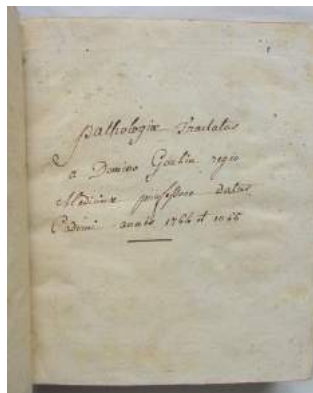 pathologiæ Tractatus
a Domino Goubin regio
Medicinæ professore datus
Cadomi annis 1764 et 1765